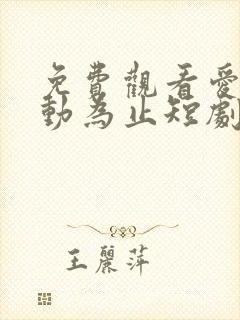 免費觀看愛
動為止短劇
王麗萍